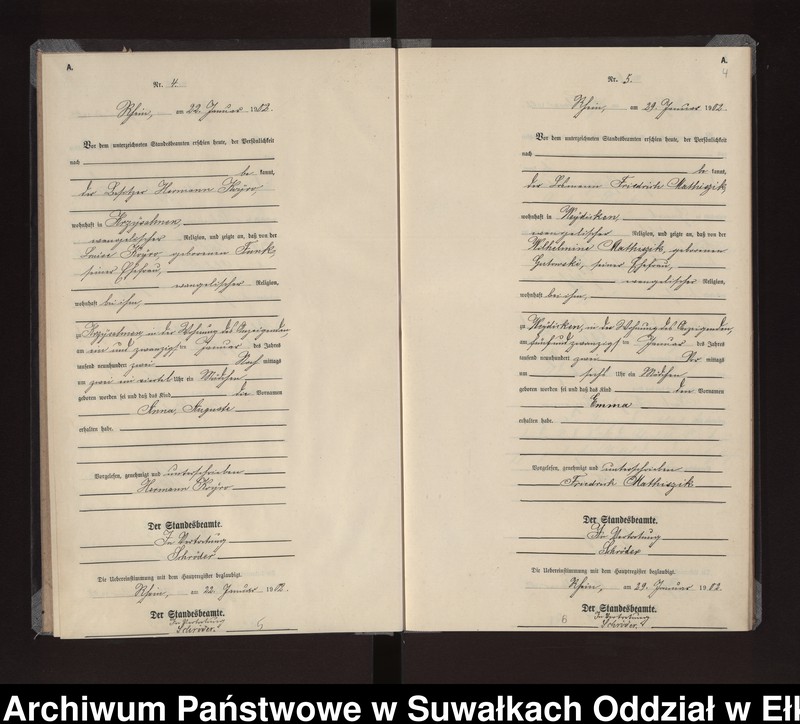 A.
Nr. 4.
Rhein, am 22. Januar 1902.
Vor dem unterzeichneten Standesbeamten erschien heute, der Persönlichkeit
nach
be kannt,
der Besitzer Hermann
wohnhaft in
evangelischer Religion, und zeigte an, daß von der
Luise geborenen Funk,
seiner Ehefrau,
evangelischer Religion,
wohnhaft bei ihm,
zu in der Wohnung des Anzeigenden,
am ein und zwanzigsten Januar des Jahres
tausend neunhundert zwei Nach mittags
um zwei ein viertel Uhr ein Mädchen
geboren worden sei und daß das Kind die Vornamen
Anna, Auguste
erhalten habe.
Vorgelesen, genehmigt und unterschrieben
Hermann
Der Standesbeamte.
In Vertretung
Schröder
Die Uebereinstimmung mit dem Hauptregister beglaubigt.
Rhein, am 22. Januar 1902.
Der Standesbeamte.
In Vertretung
Schröder.
A.
4
Nr. 5.
Rhein, am 29. Januar 1902.
Vor dem unterzeichneten Standesbeamten erschien heute, der Persönlichkeit
nach
be kannt,
der Losmann Friedrich Mathiszik,
wohnhaft in Weydicken,
evangelischer Religion, und zeigte an, daß von der
Wilhelmine Mathiszik, geborenen
Gutowski, seiner Ehefrau,
evangelischer Religion,
wohnhaft bei ihm,
zu Weydicken, in der Wohnung des Anzeigenden,
am fünfundzwanzigsten Januar des Jahres
tausend neunhundert zwei Vor mittags
um sechs Uhr ein Mädchen
geboren worden sei und daß das Kind den Vornamen
Emma
erhalten habe.
Vorgelesen, genehmigt und unterschrieben
Friedrich Mathiszik
Der Standesbeamte.
In Vertretung
Schröder
Die Uebereinstimmung mit dem Hauptregister beglaubigt.
Rhein, am 29. Januar 1902.
Der Standesbeamte.
In Vertretung
Schröder.
Archiwum Państwowe w Suwałkach Oddział w Eł